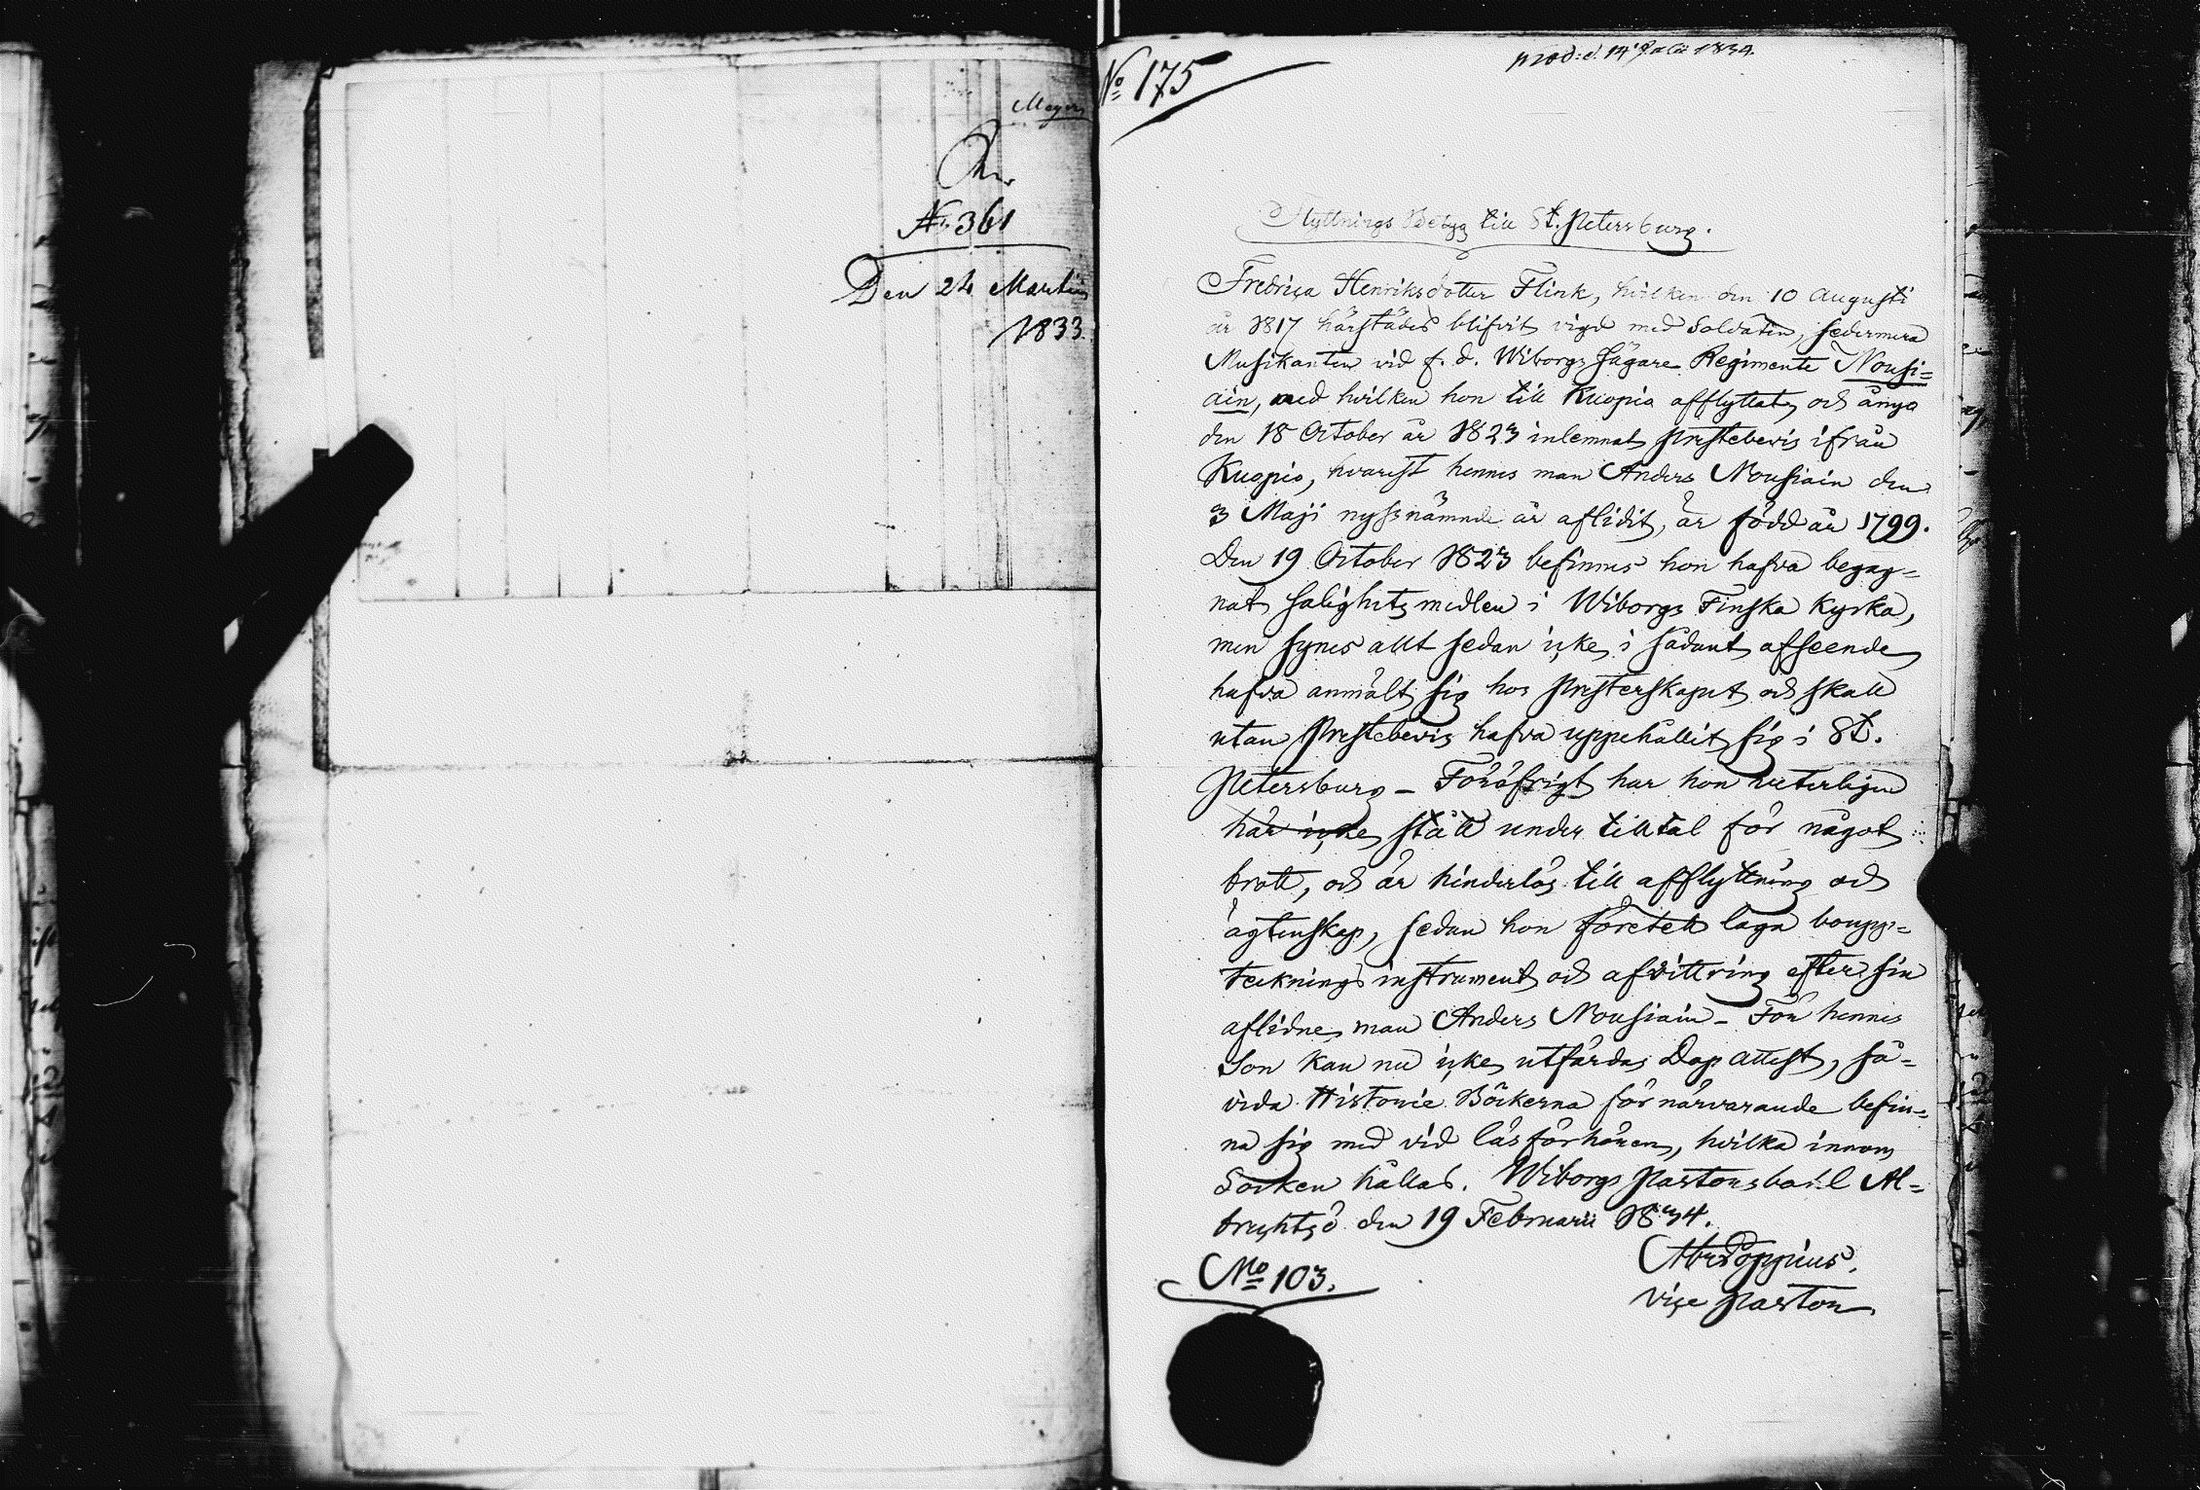 Meyer
No 361
Den 24 Martii
1833.
No 175
prod: d. 14 Julii 1834.
Flyttnings Betyg till St. Petersburg.
Fredrica Henriksdotter Flink, hvilken den 10 Augusti
år 1817 härstädes blifvit vigd med Soldaten, sedermera
Musikanten vid f. d. Wiborgs Jägare Regimente Nousi=
ain, med hvilken hon till Kuopio afflyttat, och ånyo
den 18 October år 1823 inlemnat Prestebevis ifrån
Kuopio, hvarest hennes man Anders Nousiain den
3 Maji nyssnämnde år aflidit, är född år 1799.
Den 19 October 1823 befinnes hon hafva begag=
nat salighetsmedlen i Wiborgs Finska Kyrka,
men synes allt sedan icke i sådant afseende
hafva anmält sig hos Presterskapet och skall
utan Prestebevis hafva uppehållit sig i St.
Petersburg – Föröfrigt har hon veterligen
här icke stått under tilltal för något
brott, och är hinderlös till afflyttning och
ägtenskap, sedan hon företett laga boupp=
tecknings instrument och afvittring efter sin
aflidne man Anders Nousiain – För hennes
Son kan nu icke utfärdas Dop attest, så=
vida Historie Böckerna för närvarande befin=
na sig med vid läsförhören, hvilka innom
Socken hållas. Wiborgs Pastorsboställ Al=
brechtsö den 19 Februarii 1834.
Abr Poppius.
Vice Pastor.
No 103.